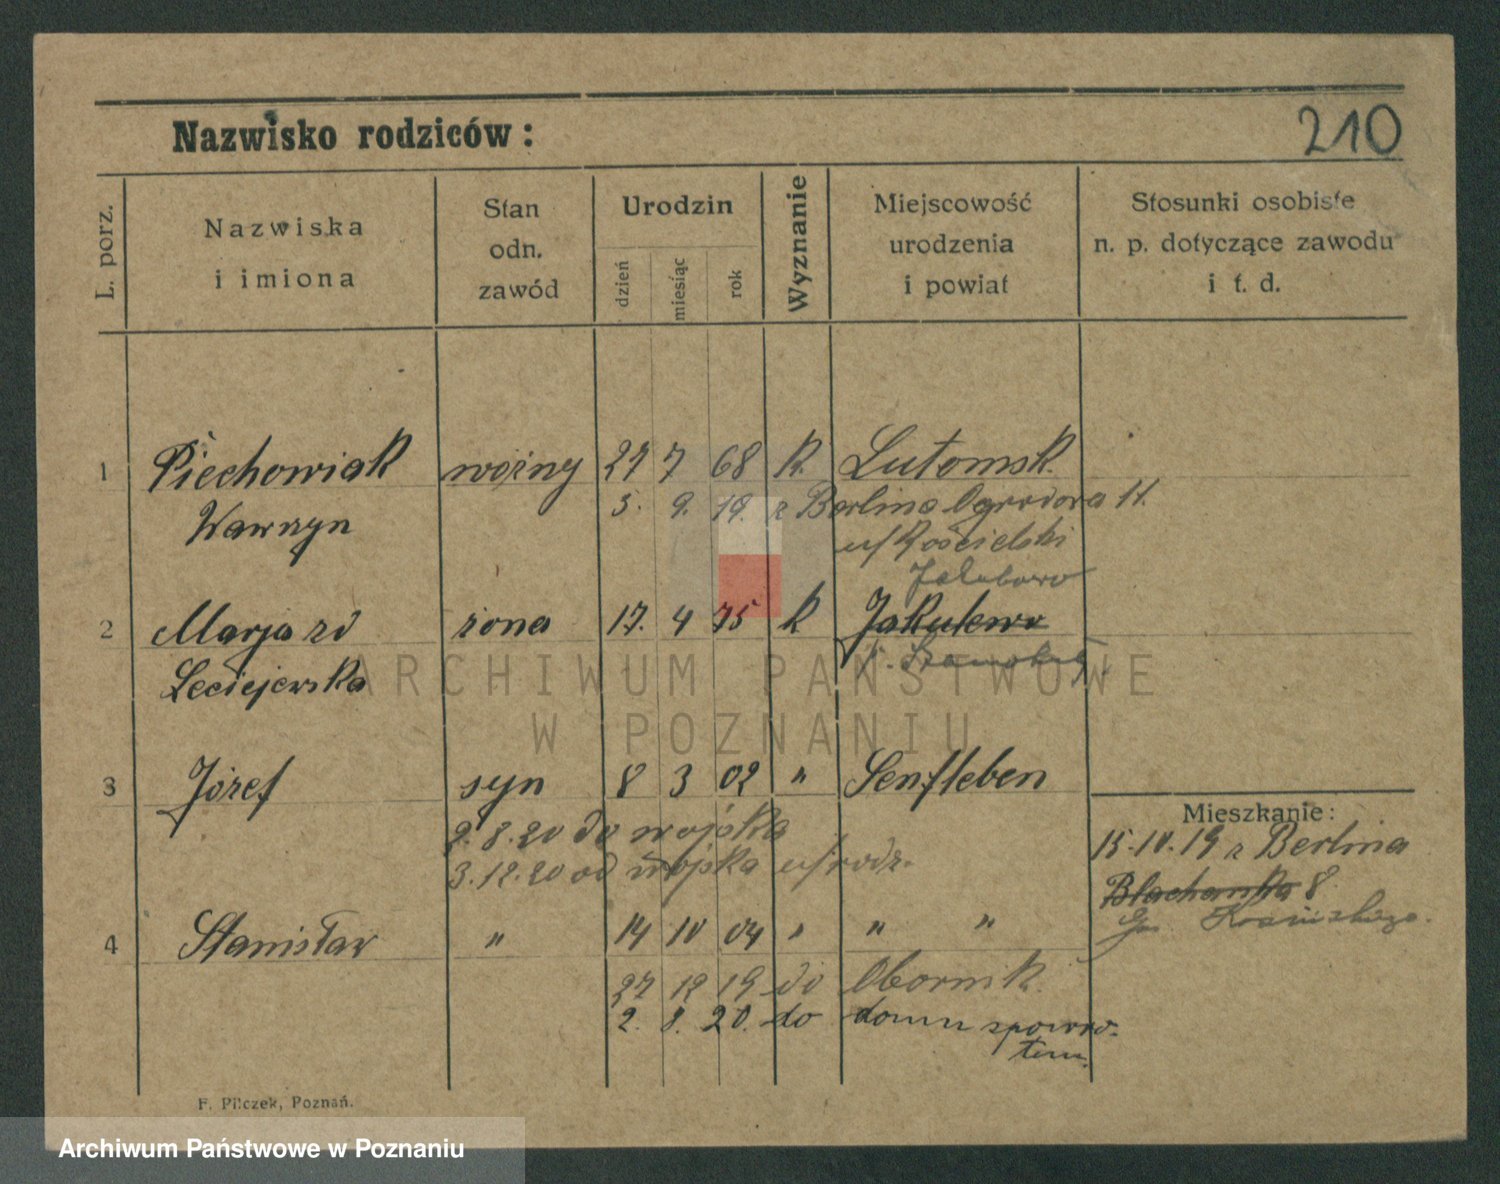 210
Nazwisko rodziców:
L. porz.
Nazwiska
i imiona
Stan
odn.
zawód
Urodzin
dzień
miesiąc
rok
Wyznanie
Miejscowość
urodzenia
i powiat
Stosunki osobiste
n. p. dotyczące zawodu
i t. d.
1 Piechowiak woźny 27 7 68 k. Lutomsk.
Wawrzyn 5. 9. 19. z Berlina Ogrodowa 11.
u/Kościelski
Jakubowo
2 Marja zd żona 17. 4 75 k Jakubowo
Leciejewska
3 Józef syn 8 3 02 " Senftleben
Mieszkanie:
2.8.20 do wojska
15.10.19 z Berlina
3.12.20 od wojska u/rodz.
8.
4 Stanisław " 14 10 04 " " "
27 12 19 do Obornik.
2. 8. 20. do domu spowro-
tem.
F. Pilczek, Poznań.
ARCHIWUM PAŃSTWOWE
W POZNANIU
Archiwum Państwowe w Poznaniu